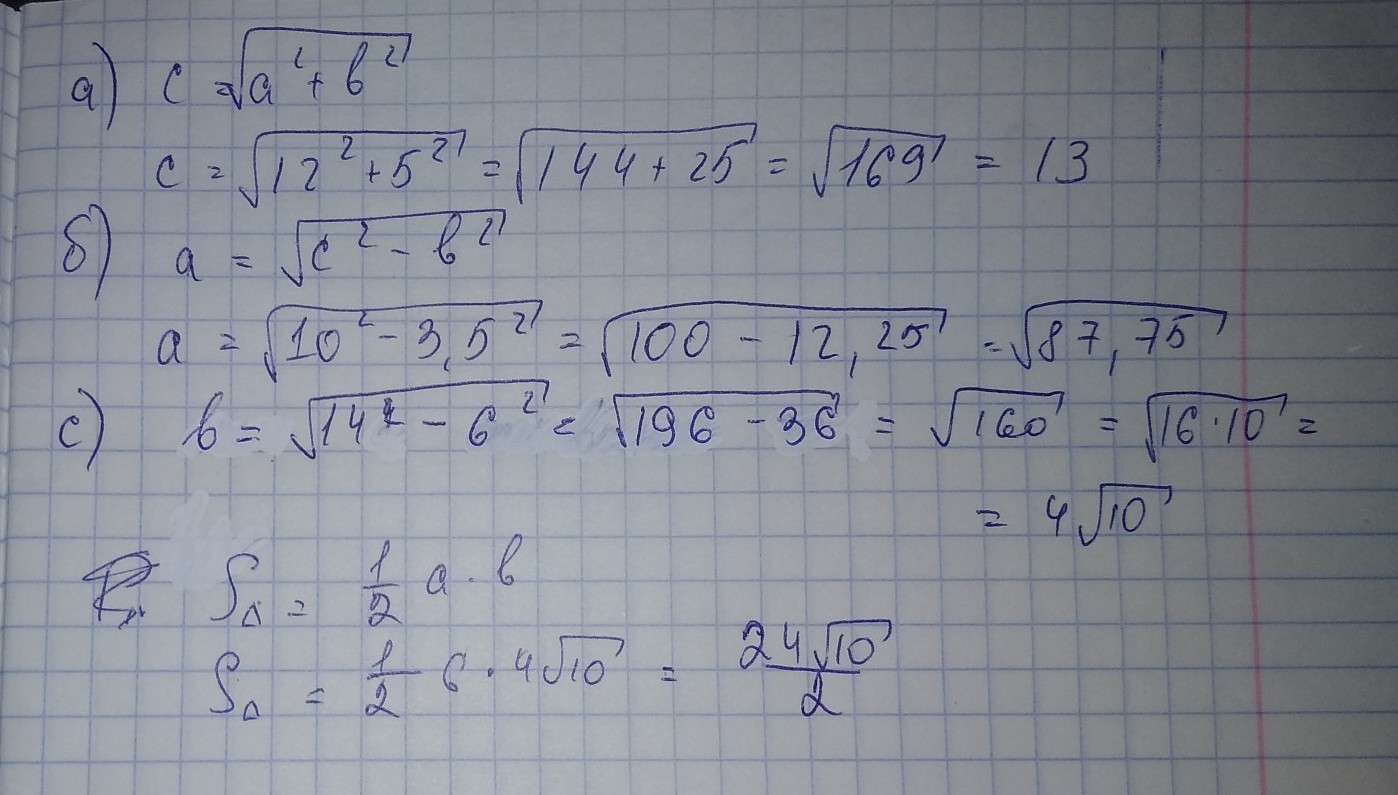 а) c = √(a² + b²)
c = √(12² + 5²) = √(144 + 25) = √169 = 13
б) a = √(c² - b²)
a = √(10² - 3,5²) = √(100 - 12,25) = √87,75
с) b = √(14² - 6²) = √(196 - 36) = √160 = √(16·10) =
= 4√10
S△ = 1/2 a · b
S△ = 1/2 6 · 4√10 = 24√10/2